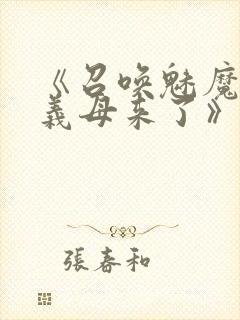 《召唤魅魔
義母来了》
張春和